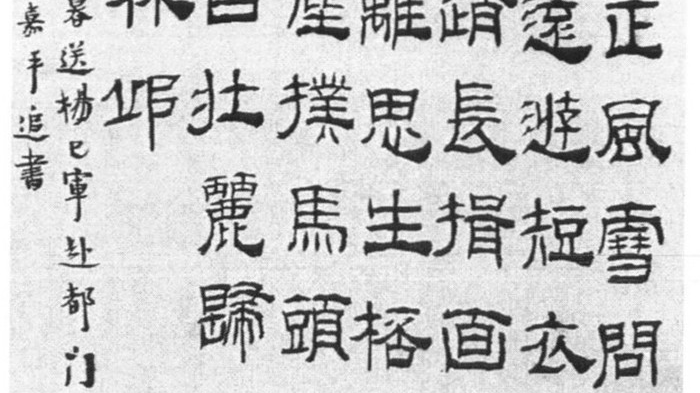 正風雪問
遠遊短衣
長揖面
離思生
塵撲馬頭
壯麗歸
送楊巳軍赴都门
嘉平追書